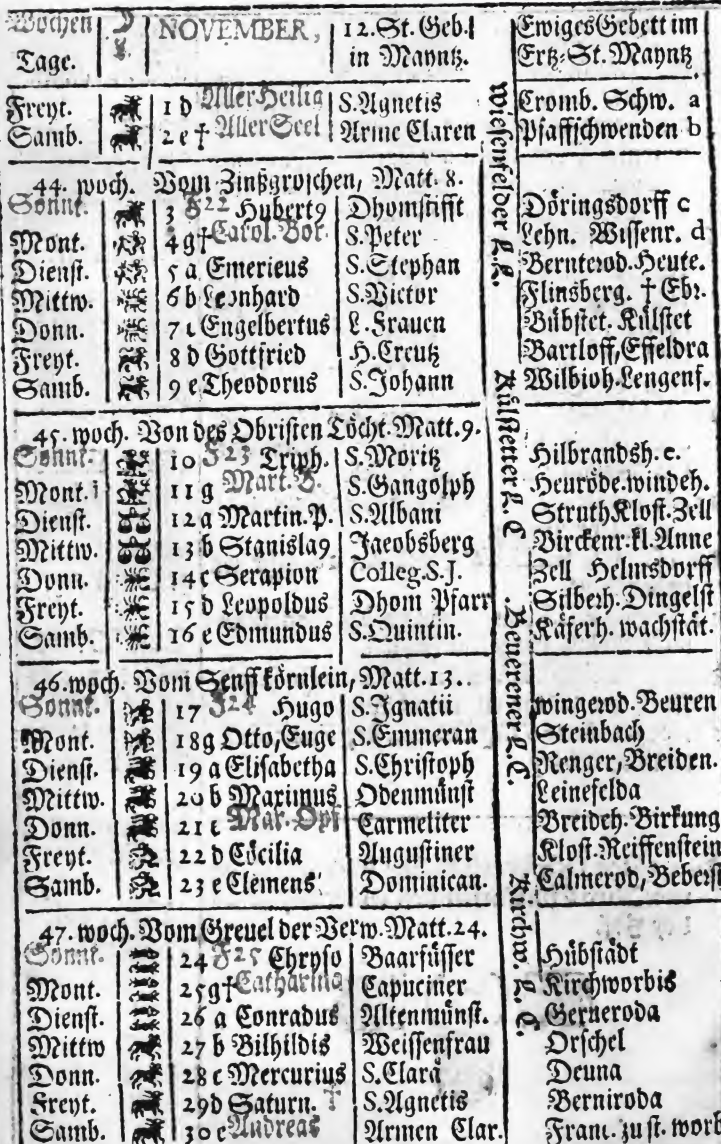 Wochen NOVEMBER, 12. St. Geb. Ewiges Gebett im
Tage. in Mayntz. Ertz-St. Mayntz
Freyt. 1 d Aller Heilig S. Agnetis Cromb. Schw. a
Samb. 2 e † Aller Seel Arme Claren Pfaffschwenden b
44. woch. Vom Zinßgroschen, Matt. 8.
Sonnt. 3 F 22 Hubert9 Dhomstifft Döringsdorff c
Mont. 4 g † Carol. Bor. S. Peter Lehn. Wissenr. d
Dienst. 5 a Emerieus S. Stephan Bernterod. Heute.
Mittw. 6 b Leonhard S. Victor Flinsberg. † Ebr.
Donn. 7 c Engelbertus L. Frauen Bübstet. Külstet
Freyt. 8 d Gottfried H. Creutz Bartloff, Effeldra
Samb. 9 e Theodorus S. Johann Wilbioh. Lengenf.
Wiesenfelder L. C.
45. woch. Von des Obristen Töcht. Matt. 9.
Sonnt. 10 F 23 Triph. S. Moritz Hilbrandsh. e.
Mont. 11 g Mart. B. S. Gangolph Heuröde. windeh.
Dienst. 12 a Martin. P. S. Albani Struth Klost. Zell
Mittw. 13 b Stanisla9 Jacobsberg Birckenr. kl. Anne
Donn. 14 c Serapion Colleg. S. J. Zell Helmsdorff
Freyt. 15 d Leopoldus Dhom Pfarr Silberh. Dingelst
Samb. 16 e Edmundus S. Quintin. Käferh. wachstät.
Külstetter L. C
46. woch. Vom Senffkörnlein, Matt. 13..
Sonnt. 17 F 24 Hugo S. Ignatii wingerod. Beuren
Mont. 18 g Otto, Euge S. Emmeran Steinbach
Dienst. 19 a Elisabetha S. Christoph Renger, Breiden.
Mittw. 20 b Maximus Odenmünst Leinefelda
Donn. 21 c Mar. Opf Carmeliter Breideh. Birkung
Freyt. 22 d Cöcilia Augustiner Klost. Reiffenstein
Samb. 23 e Clemens Dominican. Calmerod, Beberst
Beuerener L. C.
47. woch. Vom Greuel der Verw. Matt. 24.
Sonnt. 24 F 25 Chryso Baarfüsser Hübstädt
Mont. 25 g † Catharina Capuciner Kirchworbis
Dienst. 26 a Conradus Altenmünst. Gerneroda
Mittw 27 b Bilhildis Weissenfrau Orschel
Donn. 28 c Mercurius S. Clara Deuna
Freyt. 29 d Saturn. † S. Agnetis Berniroda
Samb. 30 e Andreas Armen Clar. Franc. zu st. worb
Kirchw. L. C.